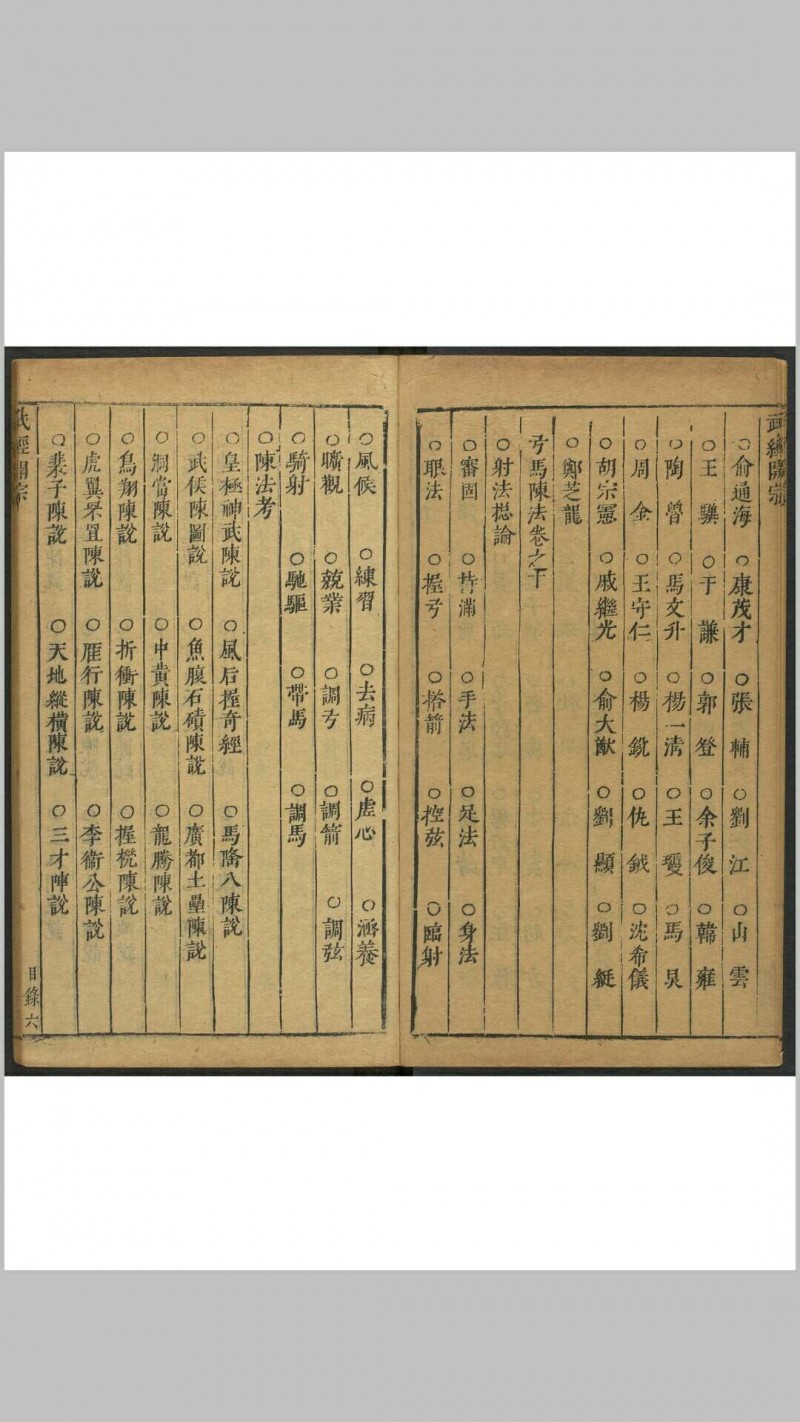 武經開宗
○俞通海 ○康茂才 ○張輔 ○劉江 ○山雲
○王驥 ○于謙 ○郭登 ○余子俊 ○韓雍
○陶魯 ○馬文升 ○楊一清 ○王瓊 ○馬炅
○周金 ○王守仁 ○楊銳 ○仇鉞 ○沈希儀
○胡宗憲 ○戚繼光 ○俞大猷 ○劉顯 ○劉綎
○鄭芝龍
弓馬陳法卷之下
○射法揔論
○審固 ○持滿 ○手法 ○足法 ○身法
○眼法 ○握弓 ○搭箭 ○控弦 ○臨射
○風候 ○練習 ○去病 ○虛心 ○涵養
○曠觀 ○兢業 ○調弓 ○調箭 ○調弦
○騎射 ○馳驅 ○帶馬 ○調馬
○陳法考
○皇極神武陳說 ○風后握奇經 ○馬隆八陳說
○武侯陳圖說 ○魚腹石磧陳說 ○廣都土壘陳說
○洞當陳說 ○中黃陳說 ○龍騰陳說
○鳥翔陳說 ○折衝陳說 ○握機陳說
○虎翼罘罝陳說 ○雁行陳說 ○李衞公陳說
○裴子陳說 ○天地縱橫陳說 ○三才陣說
武經開宗
目錄 六